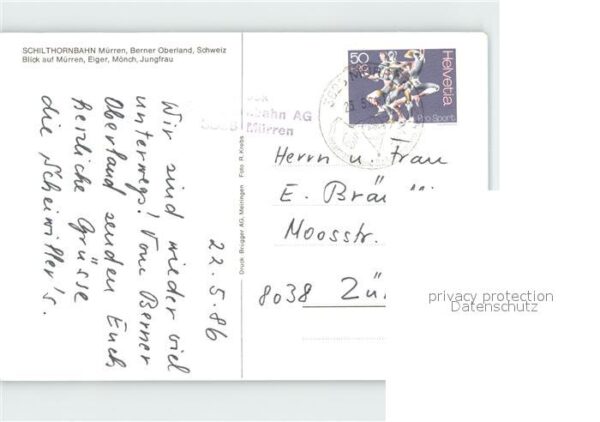 SCHILTHORNBAHN Mürren, Berner Oberland, Schweiz
Blick auf Mürren, Eiger, Mönch, Jungfrau
Wir sind wieder viel
unterwegs! Vom Berner
Oberland senden Euch
herzliche Grüsse
die Scheiwiller's.
22.5.86
Druck: Brügger AG, Meiringen Foto R. Krebs
bahn AG
Mürren
50
Helvetia
Pro Sport
Herrn u. Frau
E. Brä
Moosstr.
8038 Zü
privacy protection
Datenschutz